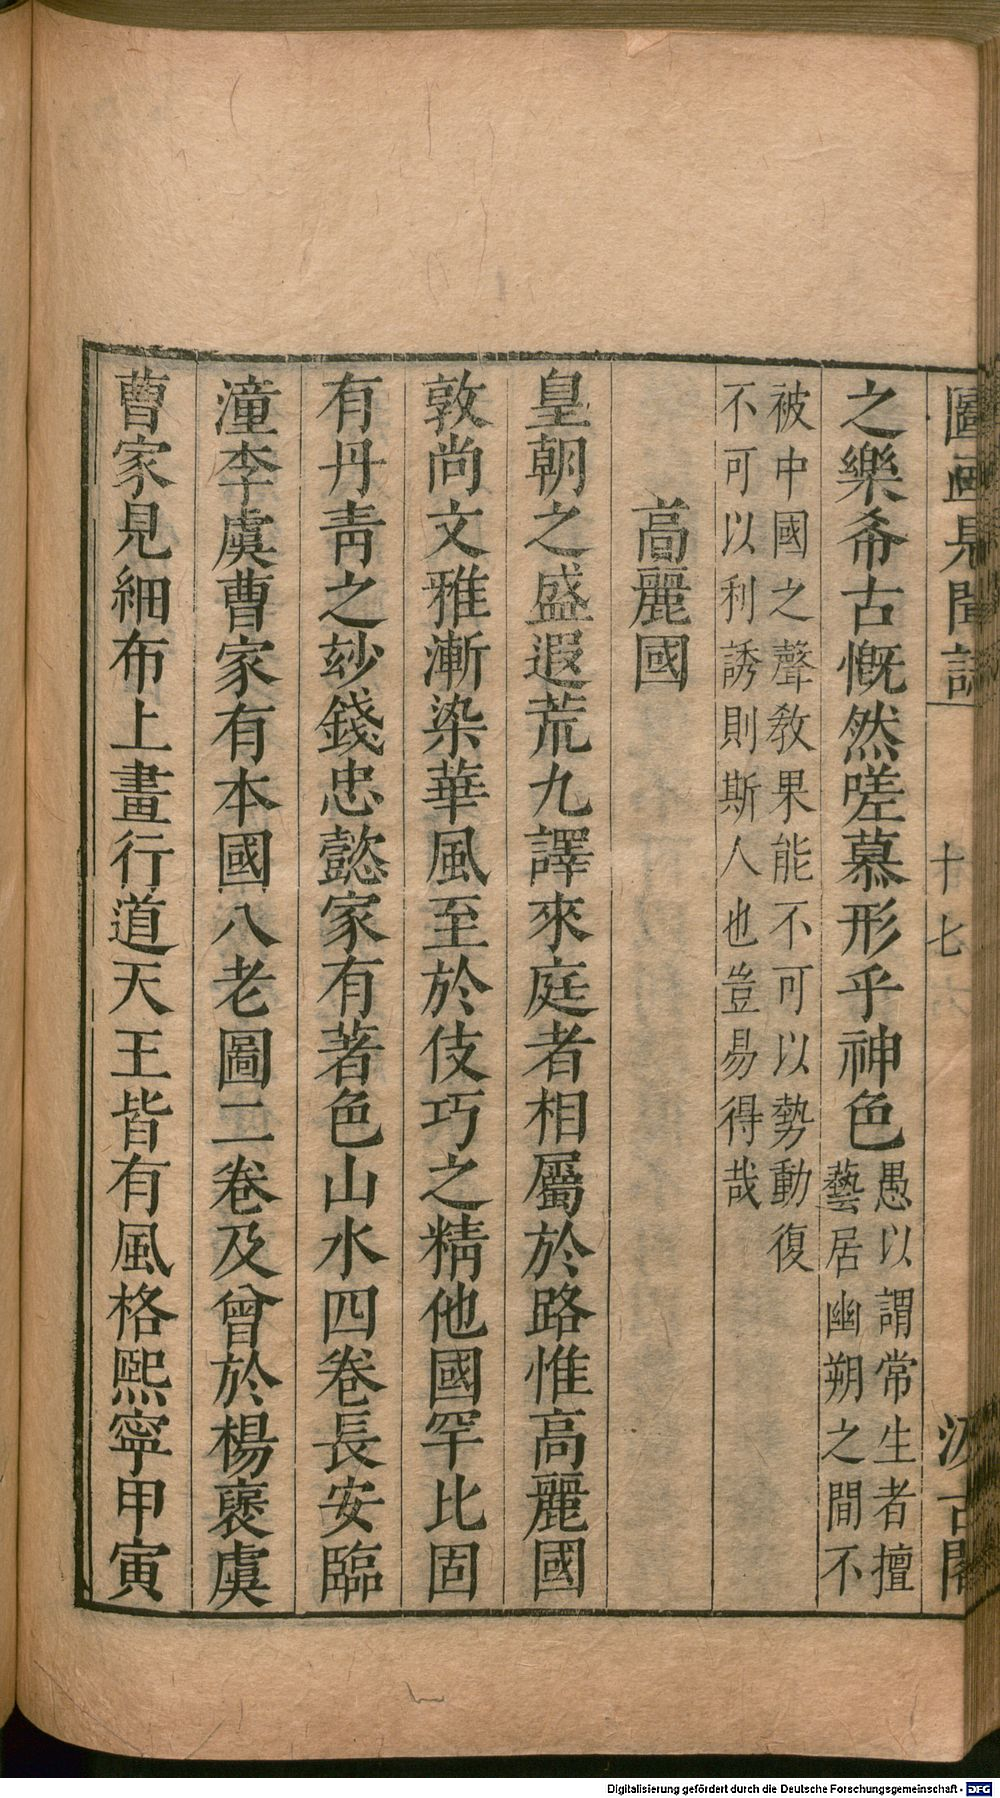 圖畫見聞誌
十七
汲古閣
之樂希古慨然嗟慕形乎神色愚以謂常生者擅
藝居幽朔之間不
被中國之聲敎果能不可以勢動復
不可以利誘則斯人也豈易得哉
高麗國
皇朝之盛遐荒九譯來庭者相屬於路惟高麗國
敦尚文雅漸染華風至於伎巧之精他國罕比固
有丹靑之玅錢忠懿家有著色山水四卷長安臨
潼李虞曹家有本國八老圖二卷及曾於楊褒虞
曹家見細布上畫行道天王皆有風格熙寧甲寅
Digitalisierung gefördert durch die Deutsche Forschungsgemeinschaft - DFG